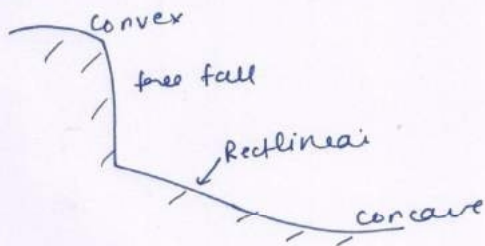 convex
free fall
Rectlinear
concave